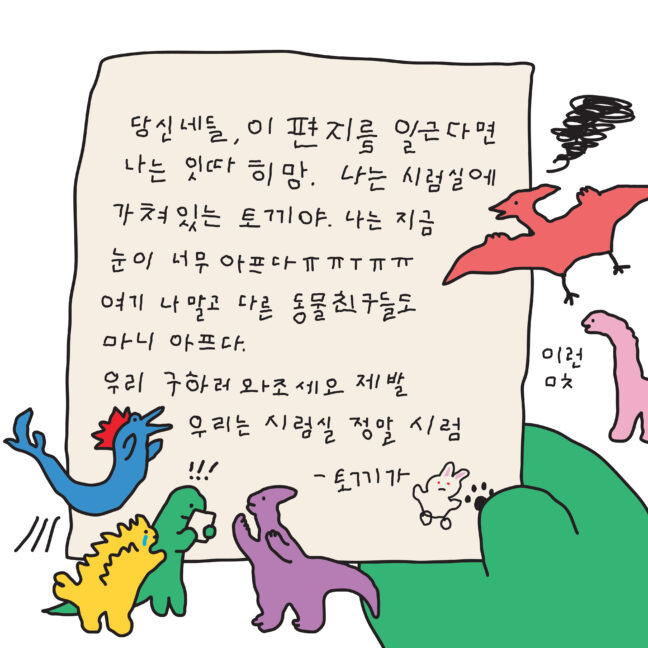 당신네들, 이 편지를 일근다면
나는 잇따 희망. 나는 시럼실에
가쳐있는 토끼야. 나는 지금
눈이 너무 아프다ㅠㅠㅜㅠㅠ
여기 나 말고 다른 동물친구들도
마니 아프다.
우리 구하러 와조세요 제발
우리는 시럼실 정말 시럼
-토끼가
이런
!!!